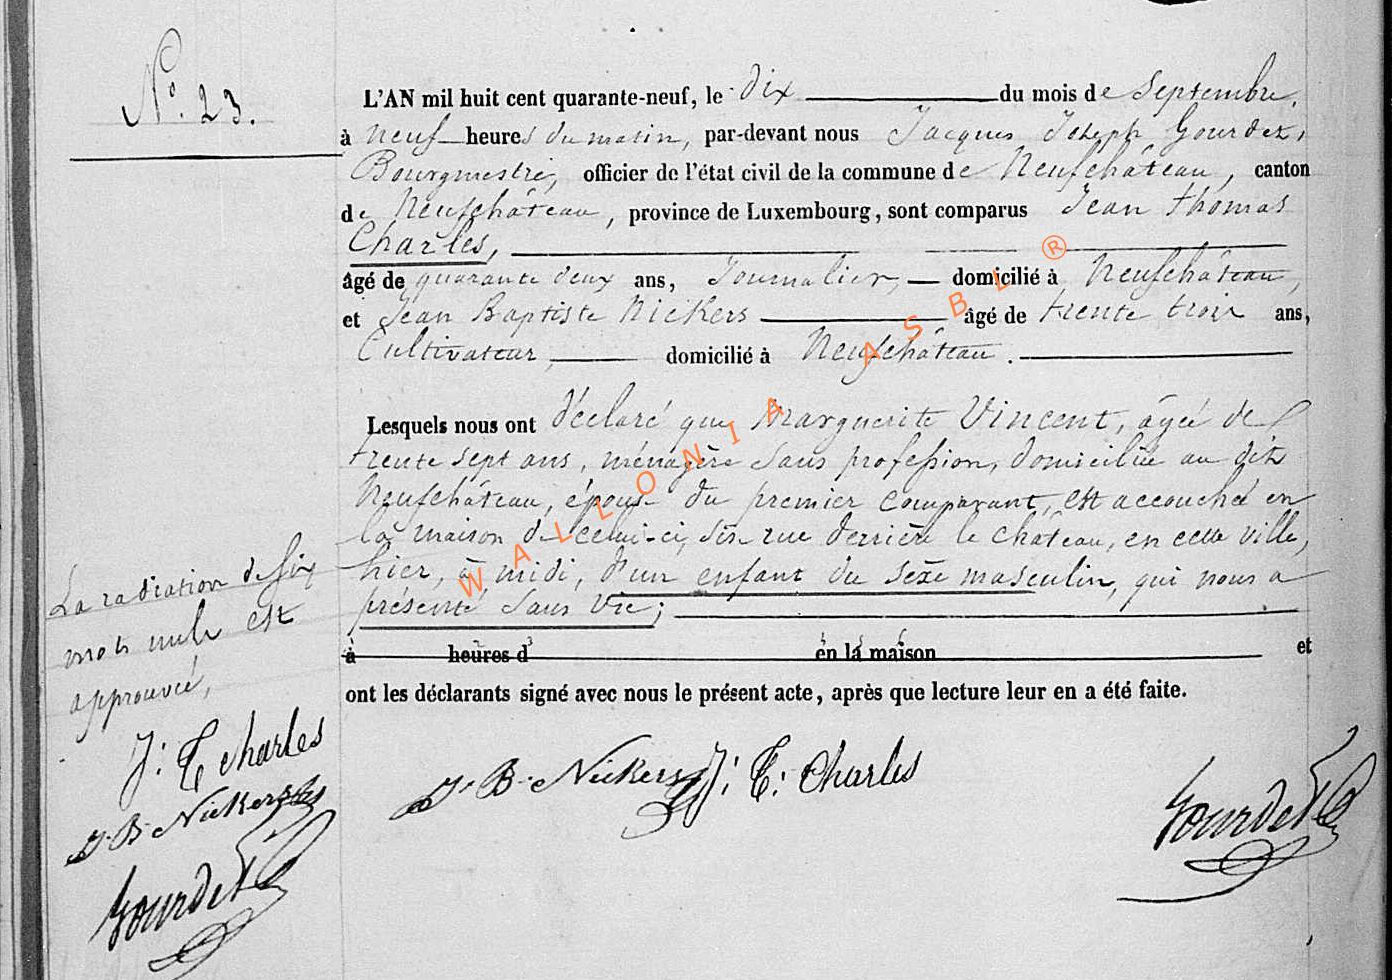 N° 23.
L'AN mil huit cent quarante-neuf, le dix du mois de Septembre,
à neuf heures du matin, par-devant nous Jacques Joseph Gourdet,
Bourgmestre, officier de l'état civil de la commune de Neufchâteau, canton
de Neufchâteau, province de Luxembourg, sont comparus Jean Thomas
Charles,
âgé de quarante deux ans, Journalier, domicilié à Neufchâteau,
et Jean Baptiste Nickers âgé de trente trois ans,
Cultivateur, domicilié à Neufchâteau.
Lesquels nous ont déclaré que Marguerite Vincent, âgée de
trente sept ans, ménagère sans profession, domiciliée au dit
Neufchâteau, épouse du premier comparant, est accouchée en
la maison de celui-ci, sise rue derrière le château, en cette ville,
hier, à midi, d'un enfant du sexe masculin, qui nous a
présenté sans vie;
à heures d en la maison et
ont les déclarants signé avec nous le présent acte, après que lecture leur en a été faite.
La radiation de six
mots nuls est
approuvée,
J: T Charles
J. B. Nickers
Gourdet
J. B. Nickers J: T: Charles
Gourdet
WALLONIA ASBL ®